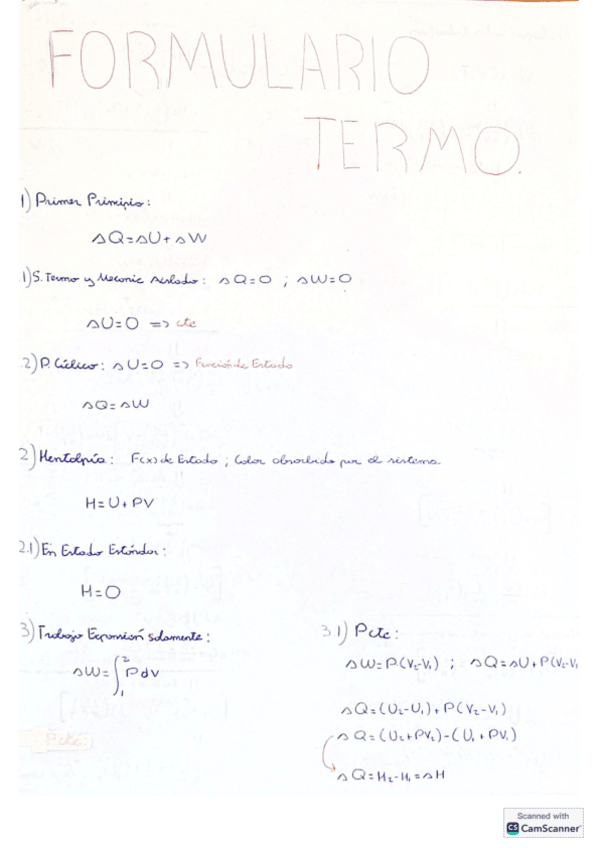 FORMULARIO
TERMO.
1) Primer Principio:
ΔQ=ΔU+ΔW
1) S. Termo y Mecanic Aislado: ΔQ=0 ; ΔW=0
ΔU=0 => cte
2) P. Cíclico: ΔU=0 => Función de Estado
ΔQ=ΔW
2) Hentalpía: F(x) de Estado ; Calor absorbido por el sistema.
H=U+PV
2.1) En Estado Estándar:
H=0
3) Trabajo Expansión solamente:
ΔW=∫₁² PdV
Pcte:
3.1) Pcte:
ΔW=P(V₂-V₁) ; ΔQ=ΔU+P(V₂-V₁
ΔQ=(U₂-U₁)+P(V₂-V₁)
ΔQ=(U₂+PV₂)-(U₁+PV₁)
ΔQ=H₂-H₁=ΔH
Scanned with
CS CamScanner